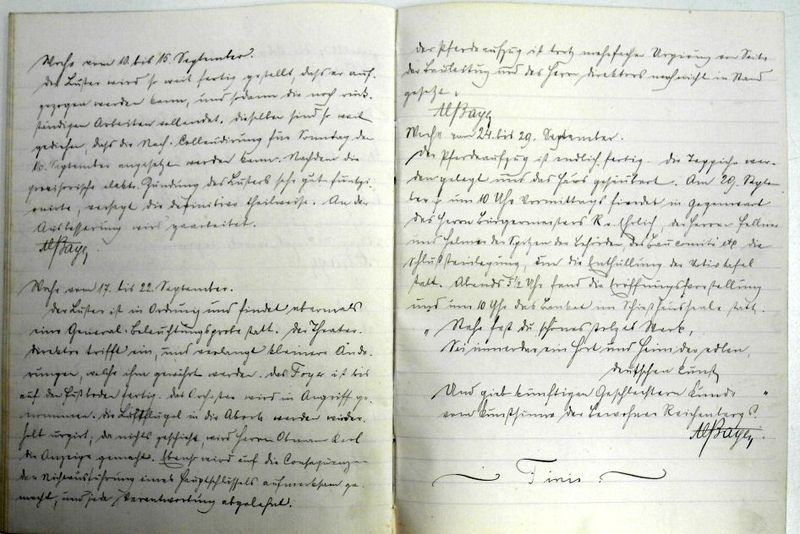 Woche vom 10. bis 15. September.
Der Luster wird so weit fertig gestellt, dass er auf-
gezogen werden kann, und sodann die noch rück-
ständigen Arbeiten vollendet. Dieselben sind so weit
gediehen, dass die Nach-Collaudirung für Sonntag den
16. September angesetzt werden kann. Nachdem die
provisorische elektr. Zündung des Lusters sehr gut functi-
onirte, versagt die definitive theilweise. An der
Ausbesserung wird gearbeitet.
AlBayer
Woche vom 17. bis 22. September.
Der Luster ist in Ordnung und findet abermals
eine General-Beleuchtungsprobe statt. Der Theater-
direktor trifft ein, und verlangt kleinere Ände-
rungen, welche ihm gewährt werden. Das Foyer ist bis
auf den Fußboden fertig. Das Orchester wird in Angriff ge-
nommen. Die Luftflügel in die Aborte werden wieder-
holt urgirt; da nichts geschieht, wird Herrn Otmann Karl
die Anzeige gemacht. Ebenso wird auf die Consequenzen
der Nichtausführung eines Hauptschlüssels aufmerksam ge-
macht, und jede Verantwortung abgelehnt.
Der Pferdeaufzug ist trotz mehrfacher Urgierung von Seite
der Bauleitung und des Herrn Direktors noch nicht in Stand
gesetzt.
AlBayer
Woche vom 24. bis 29. September.
Der Pferdeaufzug ist endlich fertig. Die Teppiche wer-
den gelegt und das Haus gesäubert. Am 29. Septem-
ber um 10 Uhr Vormittags findet in Gegenwart
des Herrn Bürgermeisters Ehrlich, der Herren Fellner
und Helmer der Spitzen der Behörden, des Baucomités etc. die
Schlußsteinlegung, und die Enthüllung der Votivtafel
statt. Abends 7½ Uhr fand die Eröffnungsvorstellung
und um 10 Uhr das Banket im Schießhaussaale statt.
„Stehe fest du schönes stolzes Werk,
Sei immerdar, ein Hort und Heim der edlen,
deutschen Kunst
Und gieb künftigen Geschlechtern Kunde
vom Kunstsinne der Bewohner Reichenbergs."
AlBayer.
Finis.